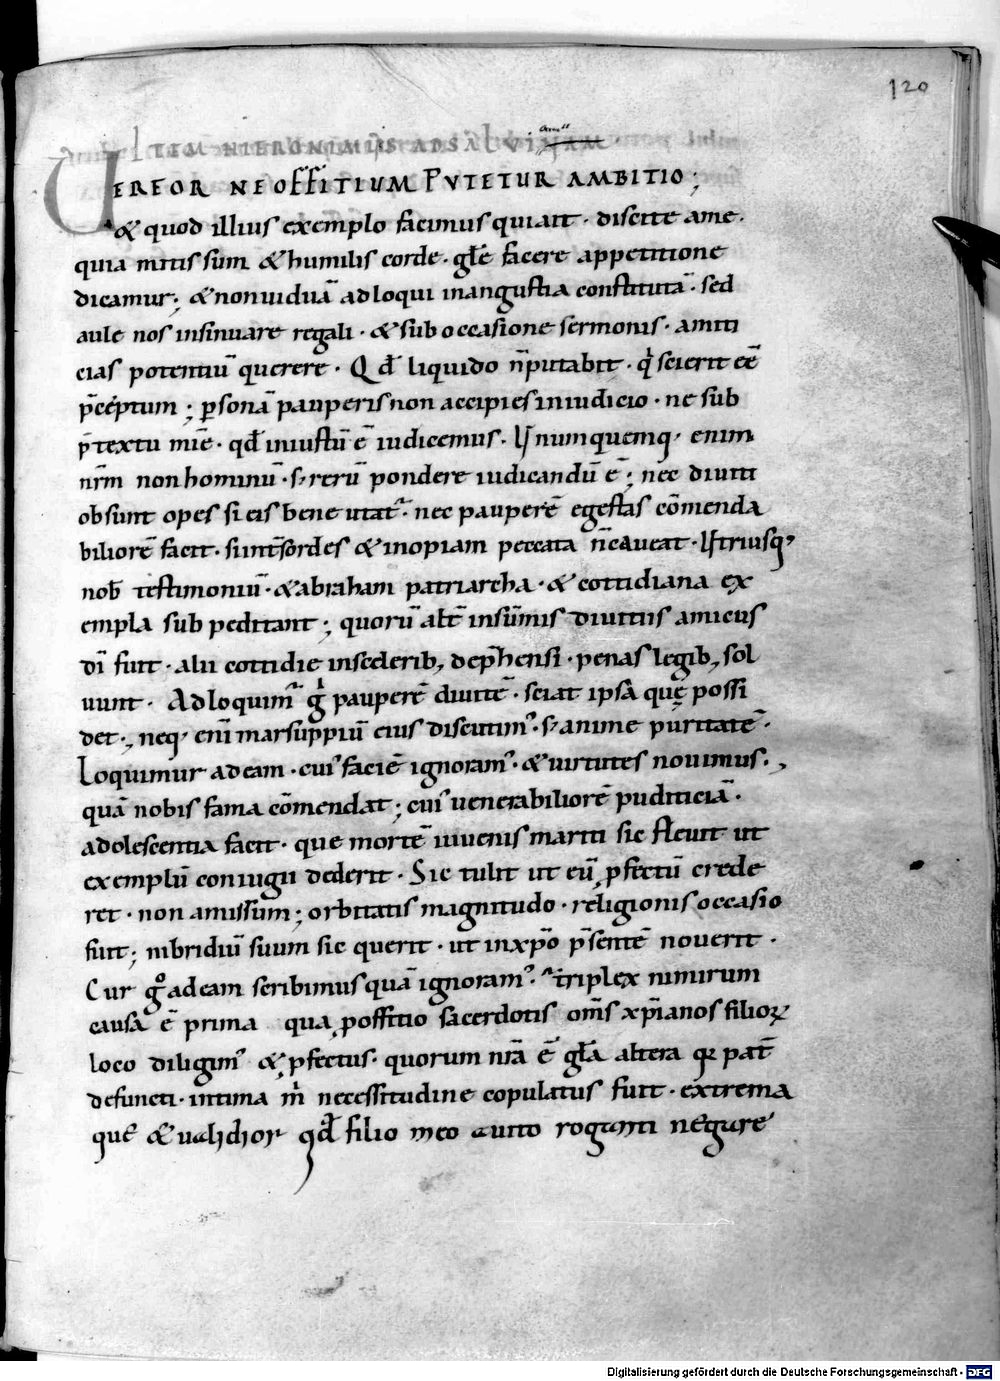 120
ITEM HIERONIMUS AD SALVINAM
UEREOR NE OFFITIUM PUTETUR AMBITIO;
& quod illius exemplo facimus qui ait · discite a me ·
quia mitis sum & humilis corde · glę facere appetitione
dicamur; & non uiduā adloqui in angustia constitutā · sed
aule nos insinuare regali · & sub occasione sermonis · amiti
cias potentiū querere · Qd̄ liquido n̄ putabit · q̇ scierit eē
p̄ceptum; p̱sonā pauperis non accipies in iudicio · ne sub
p̄textu mīe · qd̄ iniustū ē iudicemus · Unumquemq, enim
nr̄m non hominū · s; rerū pondere iudicandū ē; nec diuiti
obsunt opes si eis bene utat᷑ · nec pauperē egestas cōmenda
biliorē facit · si int̄ sordes & inopiam peccata n̄ caueat · Utriusq,
nob̄ testimoniū · & abraham patriarcha · & cottidiana ex
empla subpeditant; quorū alt̄ in sūmis diuitiis amicus
dī fuit · alii cottidie in scelerib, dep̄hensi · penas legib, sol
uunt · Adloquim᷑ g̊ pauperē diuitē · sciat ipsa quę possi
det ·, neq, enī marsuppiū eius discutim᷒ · s; anime puritatē ·
Loquimur ad eam · cui᷒ faciē ignoram᷒ · & uirtutes nouimus ·,
quā nobis fama cōmendat; cui᷒ uenerabiliorē pudiciciā ·
adolescentia facit · que mortē iuuenis mariti sic fleuit ut
exemplū coniugii dederit · Sic tulit ut eū p̱fectū crede
ret · non amissum; orbitatis magnitudo · religionis occasio
fuit; nibridiū suum sic querit · ut in xp̄o p̄sentē nouerit ·
Cur g̊ ad eam scribimus quā ignoram᷒ · triplex nimirum
causa ē prima qua ꝓ offitio sacerdotis om̄s xp̄ianos filioꝝ
loco diligim᷒ & ꝓfectus · quorum nr̄a ē glā altera qꝛ pat̄
defuncti · intima m̄ necessitudine copulatus fuit · extrema
quē & ualidior qd̄ filio meo auito roganti negare
Digitalisierung gefördert durch die Deutsche Forschungsgemeinschaft - DFG